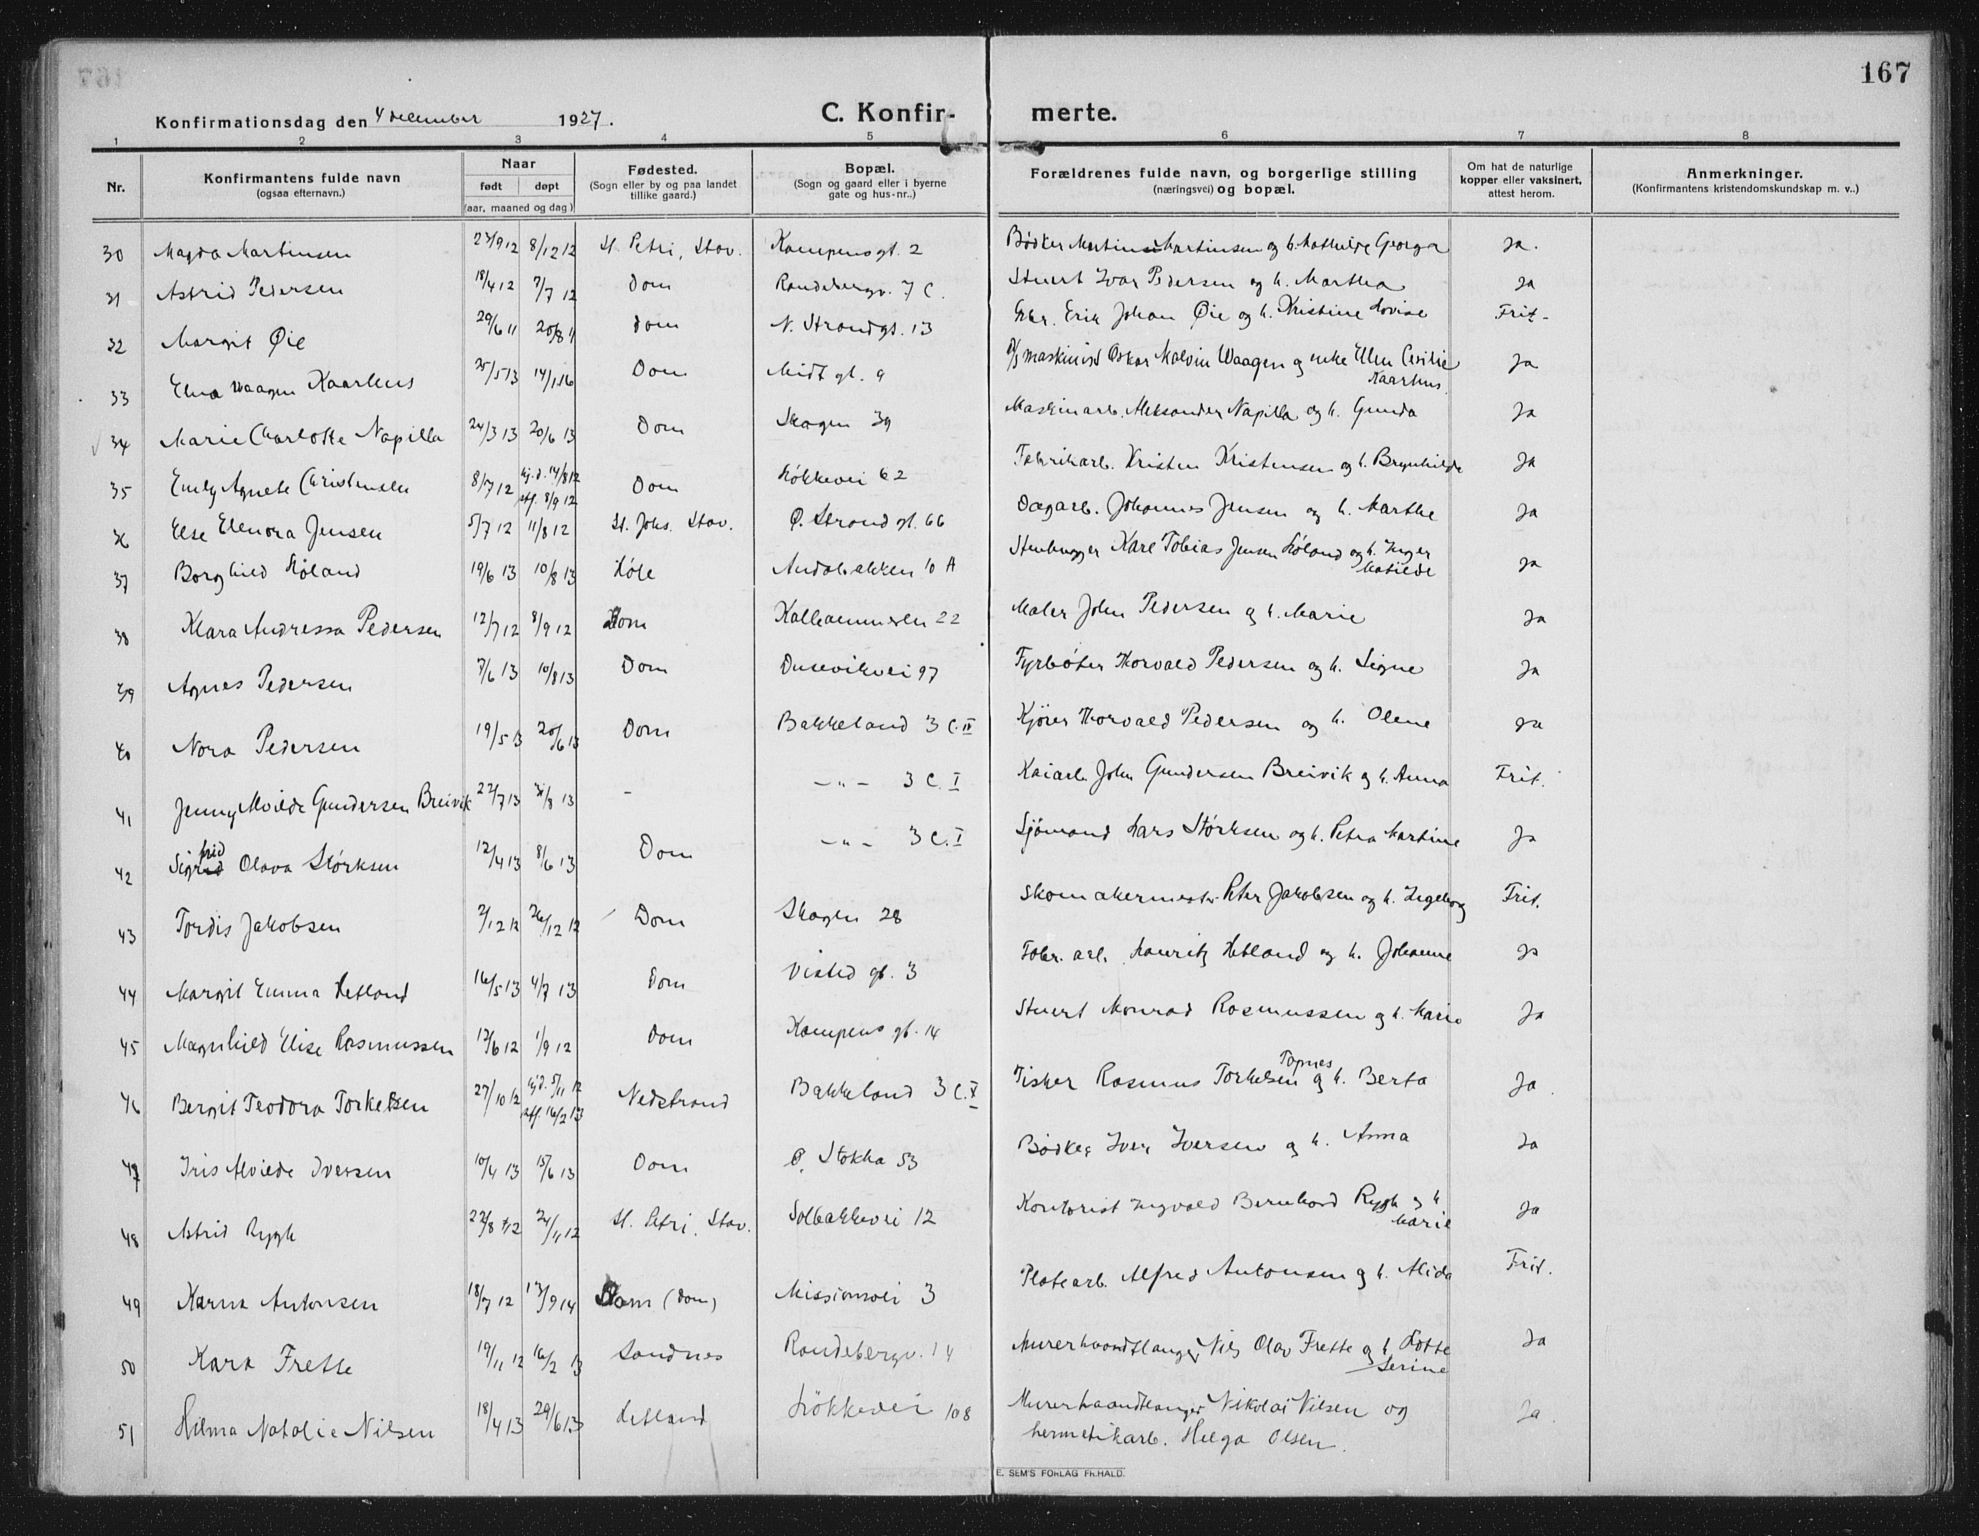 167
Konfirmationsdag den 4 december 1927.
C. Konfirmerte.
1 2 3 4 5 6 7 8
Nr.
Konfirmantens fulde navn
(ogsaa efternavn.)
Naar
født døpt
(aar, maaned og dag)
Fødested.
(Sogn eller by og paa landet
tillike gaard.)
Bopæl.
(Sogn og gaard eller i byerne
gate og hus-nr.)
Forældrenes fulde navn, og borgerlige stilling
(næringsvei) og bopæl.
Om hat de naturlige
kopper eller vaksinert,
attest herom.
Anmerkninger.
(Konfirmantens kristendomskundskap m. v..)
30 Magda Martinsen 27/9 12 8/12 12 St. Petri, Stav. Kampensgt. 2 Bødker Martin Martinsen og h. Mathilde Georga Ja.
31 Astrid Pedersen 18/4 12 7/7 12 Dom Randebergv. 7 C. Stuert Ivar Pedersen og h. Martha Ja
32 Margit Øie 29/6 11 20/8 11 Dom N. Strandgt. 13 Erik Johan Øie og h. Kristine Lovise Frit-
33 Elna Waagen Kaarhus 25/5 13 14/1 16 Dom Midtgt. 9 maskinist Oskar Malvin Waagen og enke Ellen Cecilie Kaarhus Ja
34 Marie Charlotte Napilla 24/3 13 20/6 13 Dom Skagen 39 Maskinarb. Aleksander Napilla og h. Gunda Ja
35 Emly Agnete Christensen 8/7 12 hj.d. 14/8 12 stf. 8/9 12 Dom Løkkevei 62 Fabrikarb. Kristen Kristensen og h. Brynhilde Ja
36 Else Elenora Jensen 5/7 12 11/8 12 St. Johs. Stav. Ø. Strandgt. 66 Dagarb. Johannes Jensen og h. Marthe Ja
37 Borghild Høland 19/6 13 10/8 13 Høle Andabakken 10 A Stenhugger Karl Tobias Jensen Høland og h. Inger Matilde Ja
38 Klara Andressa Pedersen 12/7 12 8/9 12 Dom Kalhammeren 22 Maler John Pedersen og h. Marie Ja
39 Agnes Pedersen 7/6 13 10/8 13 Dom Dusevikvei 97 Fyrbøter Thorvald Pedersen og h. Signe Ja
40 Nora Pedersen 19/5 13 20/6 13 Dom Bakkeland 3 C. II Kjører Thorvald Pedersen og h. Olene Ja
41 Jenny Alvilde Gundersen Breivik 27/7 13 31/8 13 - -"- 3 C. I Kaiarb John Gundersen Breivik og h. Anna Frit.
42 Sigfrid Olava Størksen 12/4 13 8/6 13 Dom -"- 3 C. I Sjømand Lars Størksen og h. Petra Martine Ja
43 Tordis Jakobsen 2/12 12 26/12 12 Dom Skagen 28 Skomakermester Peter Jakobsen og h. Ingeborg Frit.
44 Margit Emma Hetland 16/5 13 4/7 13 Dom Vistedgt. 3 Fabr. arb. Lauritz Hetland og h. Johanne Ja
45 Magnhild Elise Rasmussen 13/6 12 1/9 12 Dom Kampensgt. 14 Stuert Monrad Rasmussen og h. Marie Ja
46 Bergit Teodora Torkelsen 27/10 12 hj.d. 5/11 12 stf. 16/2 13 Nedstrand Bakkeland 3 C. V Fisker Rasmus Torkelsen Topnes og h. Berta Ja.
47 Iris Alvilde Iversen 10/4 13 15/6 13 Dom Ø. Stokka 53 Bødker Iver Iversen og h. Anna Ja
48 Astrid Rygh 22/8 12 24/11 12 St. Petri, Stav. Solbakkevei 12 Kontorist Ingvald Bernhard Rygh og h. Marie Ja
49 Karna Antonsen 18/7 12 13/9 14 Dom (Dom) Missionsvei 3 Platearb. Alfred Antonsen og h. Alida Frit.
50 Kara Frette 19/11 12 16/2 13 Sandnes Randebergv. 14 Murerhaandtlanger Nils Olav Frette og h. Lotte Serine Ja
51 Hilma Natalie Nilsen 18/4 13 29/6 13 Hetland Løkkevei 108 Murerhaandtlanger Nikolai Nilsen og
hermetikarb. Helga Olsen. Ja.
E. SEM'S FORLAG FR.HALD.